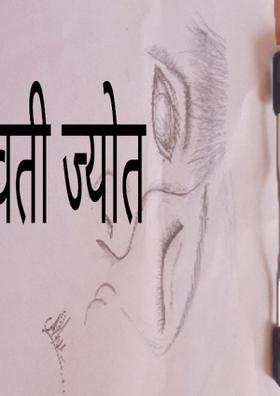 वती ज्योत